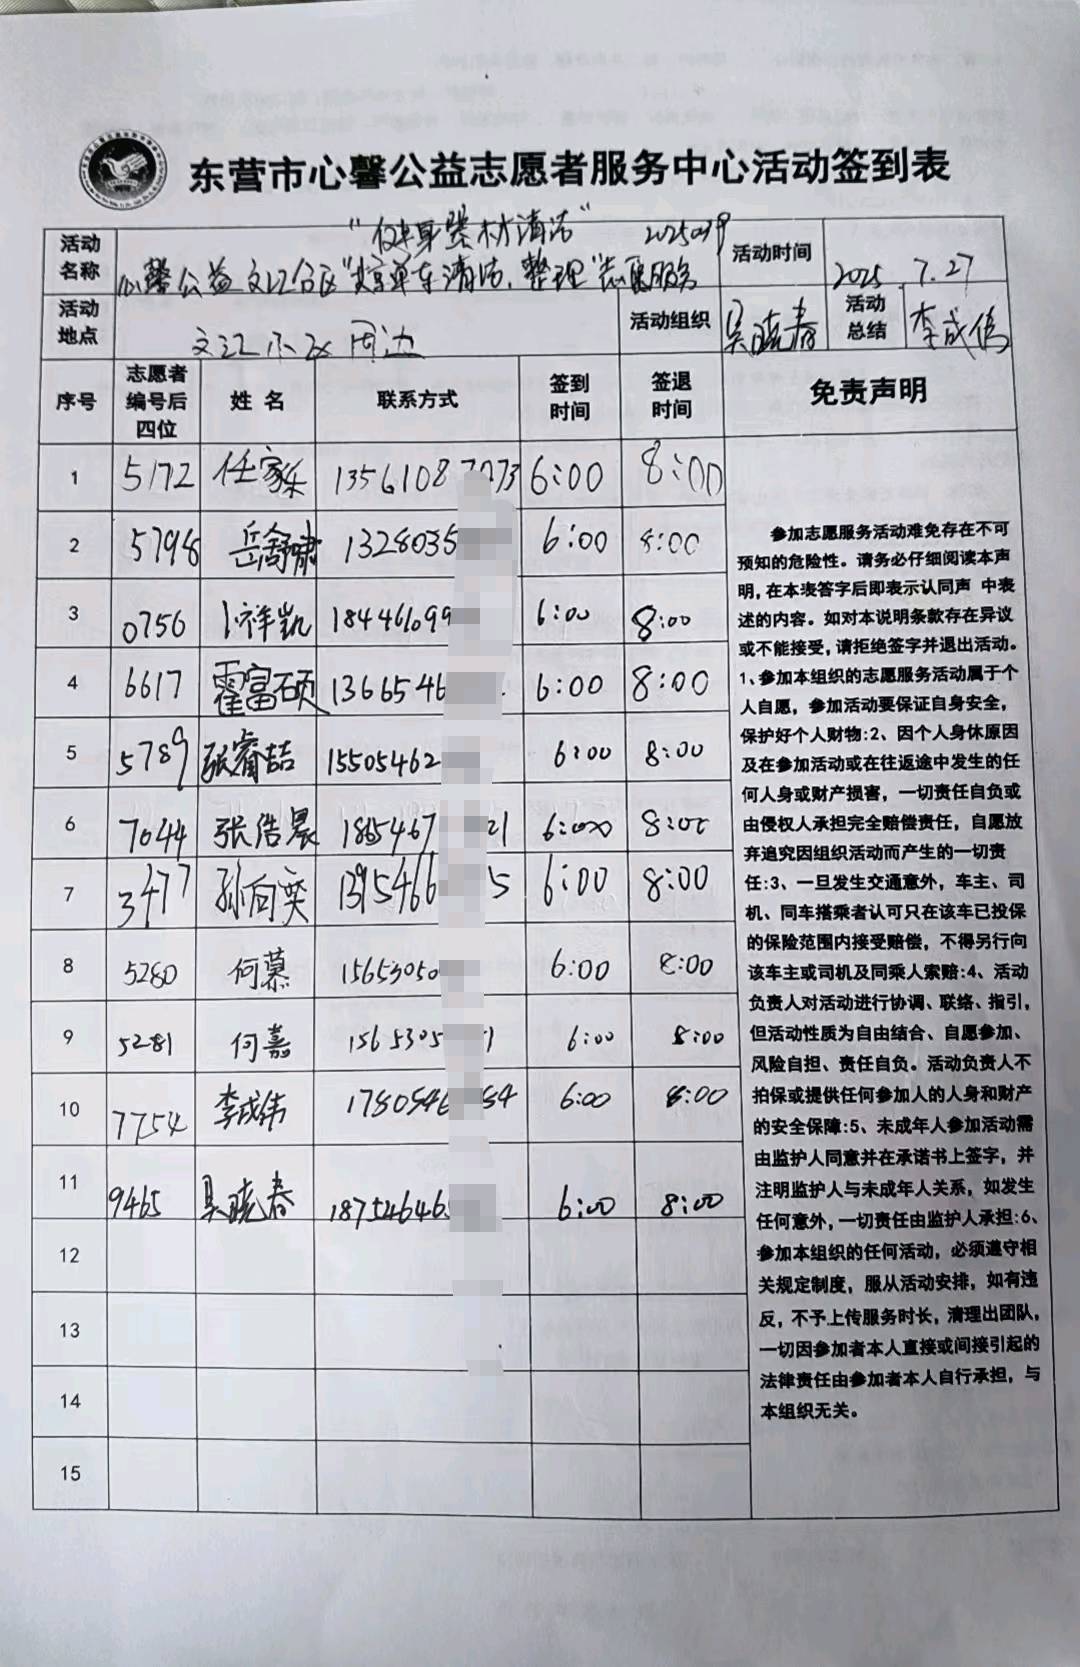 东营市心馨公益志愿者服务中心活动签到表
活动名称
"健身器材清洁"
心馨公益文汇分区"共享单车清洁、整理"志愿服务
活动时间
2025.7.27
活动地点
文汇小区周边
活动组织
吴晓春
活动总结
李成伟
序号 志愿者编号后四位 姓名 联系方式 签到时间 签退时间 免责声明
1 5172 任家乐 1356108 6:00 8:00
2 5798 岳舒啸 1328035 6:00 8:00
3 0756 卜祥凯 184461099 6:00 8:00
4 6617 霍富硕 1366546 6:00 8:00
5 5789 张睿喆 15505462 6:00 8:00
6 7044 张浩晨 21 6:00 8:00
7 3477 孙向奕 1395466 5 6:00 8:00
8 5280 何慕 15653050 6:00 8:00
9 5281 何嘉 1565305 1 6:00 8:00
10 7754 李成伟 1780546 84 6:00 8:00
11 9465 吴晓春 187546465 6:00 8:00
12
13
14
15
参加志愿服务活动难免存在不可
预知的危险性。请务必仔细阅读本声
明，在本表答字后即表示认同声 中表
述的内容。如对本说明条款存在异议
或不能接受，请拒绝签字并退出活动。
1、参加本组织的志愿服务活动属于个
人自愿，参加活动要保证自身安全，
保护好个人财物:2、因个人身休原因
及在参加活动或在往返途中发生的任
何人身或财产损害，一切责任自负或
由侵权人承担完全赔偿责任，自愿放
弃追究因组织活动而产生的一切责
任:3、一旦发生交通意外，车主、司
机、同车搭乘者认可只在该车已投保
的保险范围内接受赔偿，不得另行向
该车主或司机及同乘人索赔:4、活动
负责人对活动进行协调、联络、指引，
但活动性质为自由结合、自愿参加、
风险自担、责任自负。活动负责人不
拍保或提供任何参加人的人身和财产
的安全保障:5、未成年人参加活动需
由监护人同意并在承诺书上签字，并
注明监护人与未成年人关系，如发生
任何意外，一切责任由监护人承担:6、
参加本组织的任何活动，必须遵守相
关规定制度，服从活动安排，如有违
反，不予上传服务时长，清理出团队，
一切因参加者本人直接或间接引起的
法律责任由参加者本人自行承担，与
本组织无关。